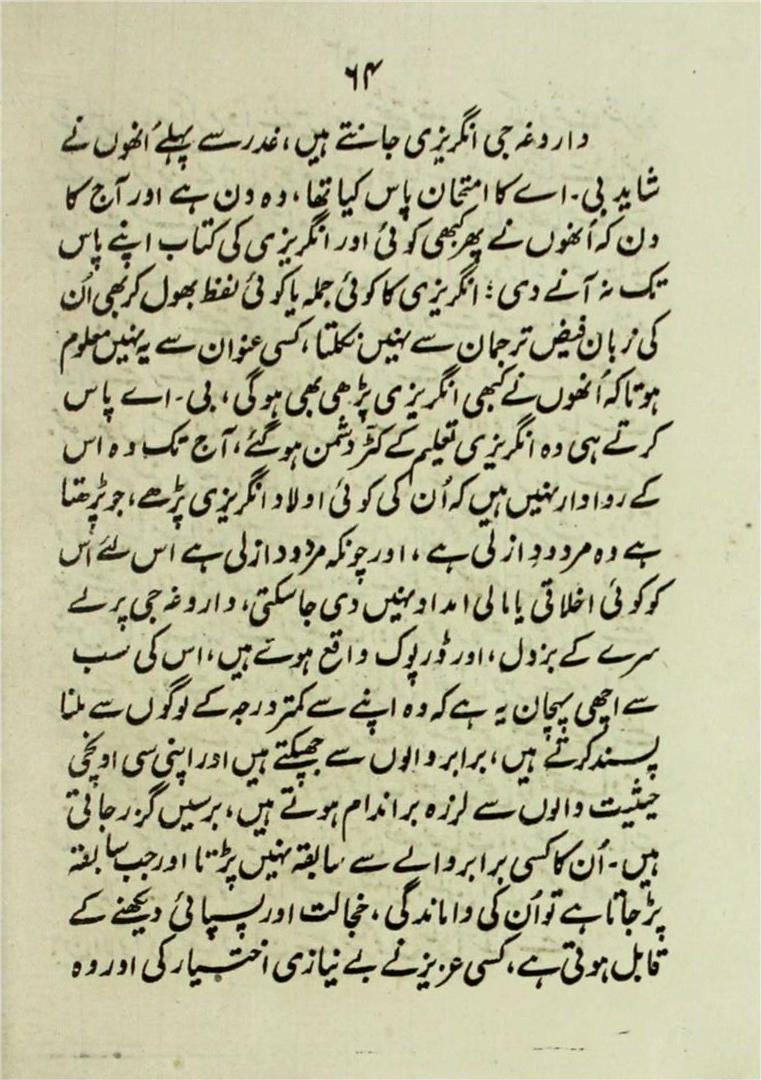 ۶۴
داروغہ جی انگریزی جانتے ہیں، غدر سے پہلے اُنھوں نے
شاید بی۔اے کا امتحان پاس کیا تھا، وہ دن ہے اور آج کا
دن کہ اُنھوں نے پھر کبھی کوئی اور انگریزی کی کتاب اپنے پاس
تک نہ آنے دی؛ انگریزی کا کوئی جملہ یا کوئی لفظ بھول کر بھی اُن
کی زبان فیض ترجمان سے نہیں نکلتا، کسی عنوان سے یہ نہیں معلوم
ہوتا کہ اُنھوں نے کبھی انگریزی پڑھی بھی ہوگی، بی۔اے پاس
کرتے ہی وہ انگریزی تعلیم کے کٹر دشمن ہوگئے، آج تک وہ اس
کے روادار نہیں ہیں کہ اُن کی کوئی اولاد انگریزی پڑھے، جو پڑھتا
ہے وہ مردودِ ازلی ہے، اور چونکہ مردود ازلی ہے اس لئے اُس
کو کوئی اخلاقی یا مالی امداد نہیں دی جاسکتی، داروغہ جی پرلے
سرے کے بزدل، اور ڈرپوک واقع ہوئے ہیں، اس کی سب
سے اچھی پہچان یہ ہے کہ وہ اپنے سے کمتر درجہ کے لوگوں سے ملنا
پسند کرتے ہیں، برابر والوں سے جھپکتے ہیں اور اپنی سی اونچی
حیثیت والوں سے لرزہ براندام ہوتے ہیں، برسیں گزر جاتی
ہیں۔ اُن کا کسی برابر والے سے سابقہ نہیں پڑتا اور جب سابقہ
پڑ جاتا ہے تو اُن کی واماندگی، خجالت اور پسپائی دیکھنے کے
قابل ہوتی ہے، کسی عزیز نے بے نیازی اختیار کی اور وہ